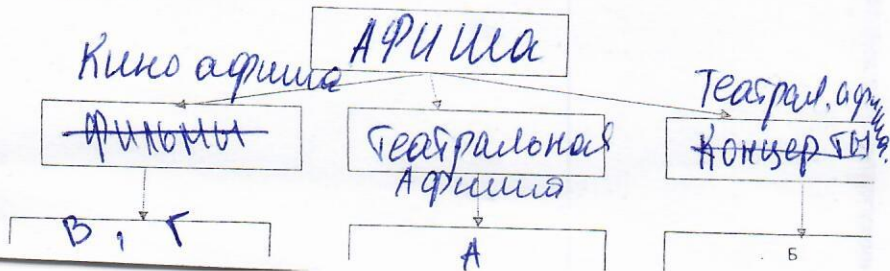 АФИША
Кино афиша
Театрал. афиша.
Фильмы
Театральная
Афиша
Концерты
В, Г
А
Б